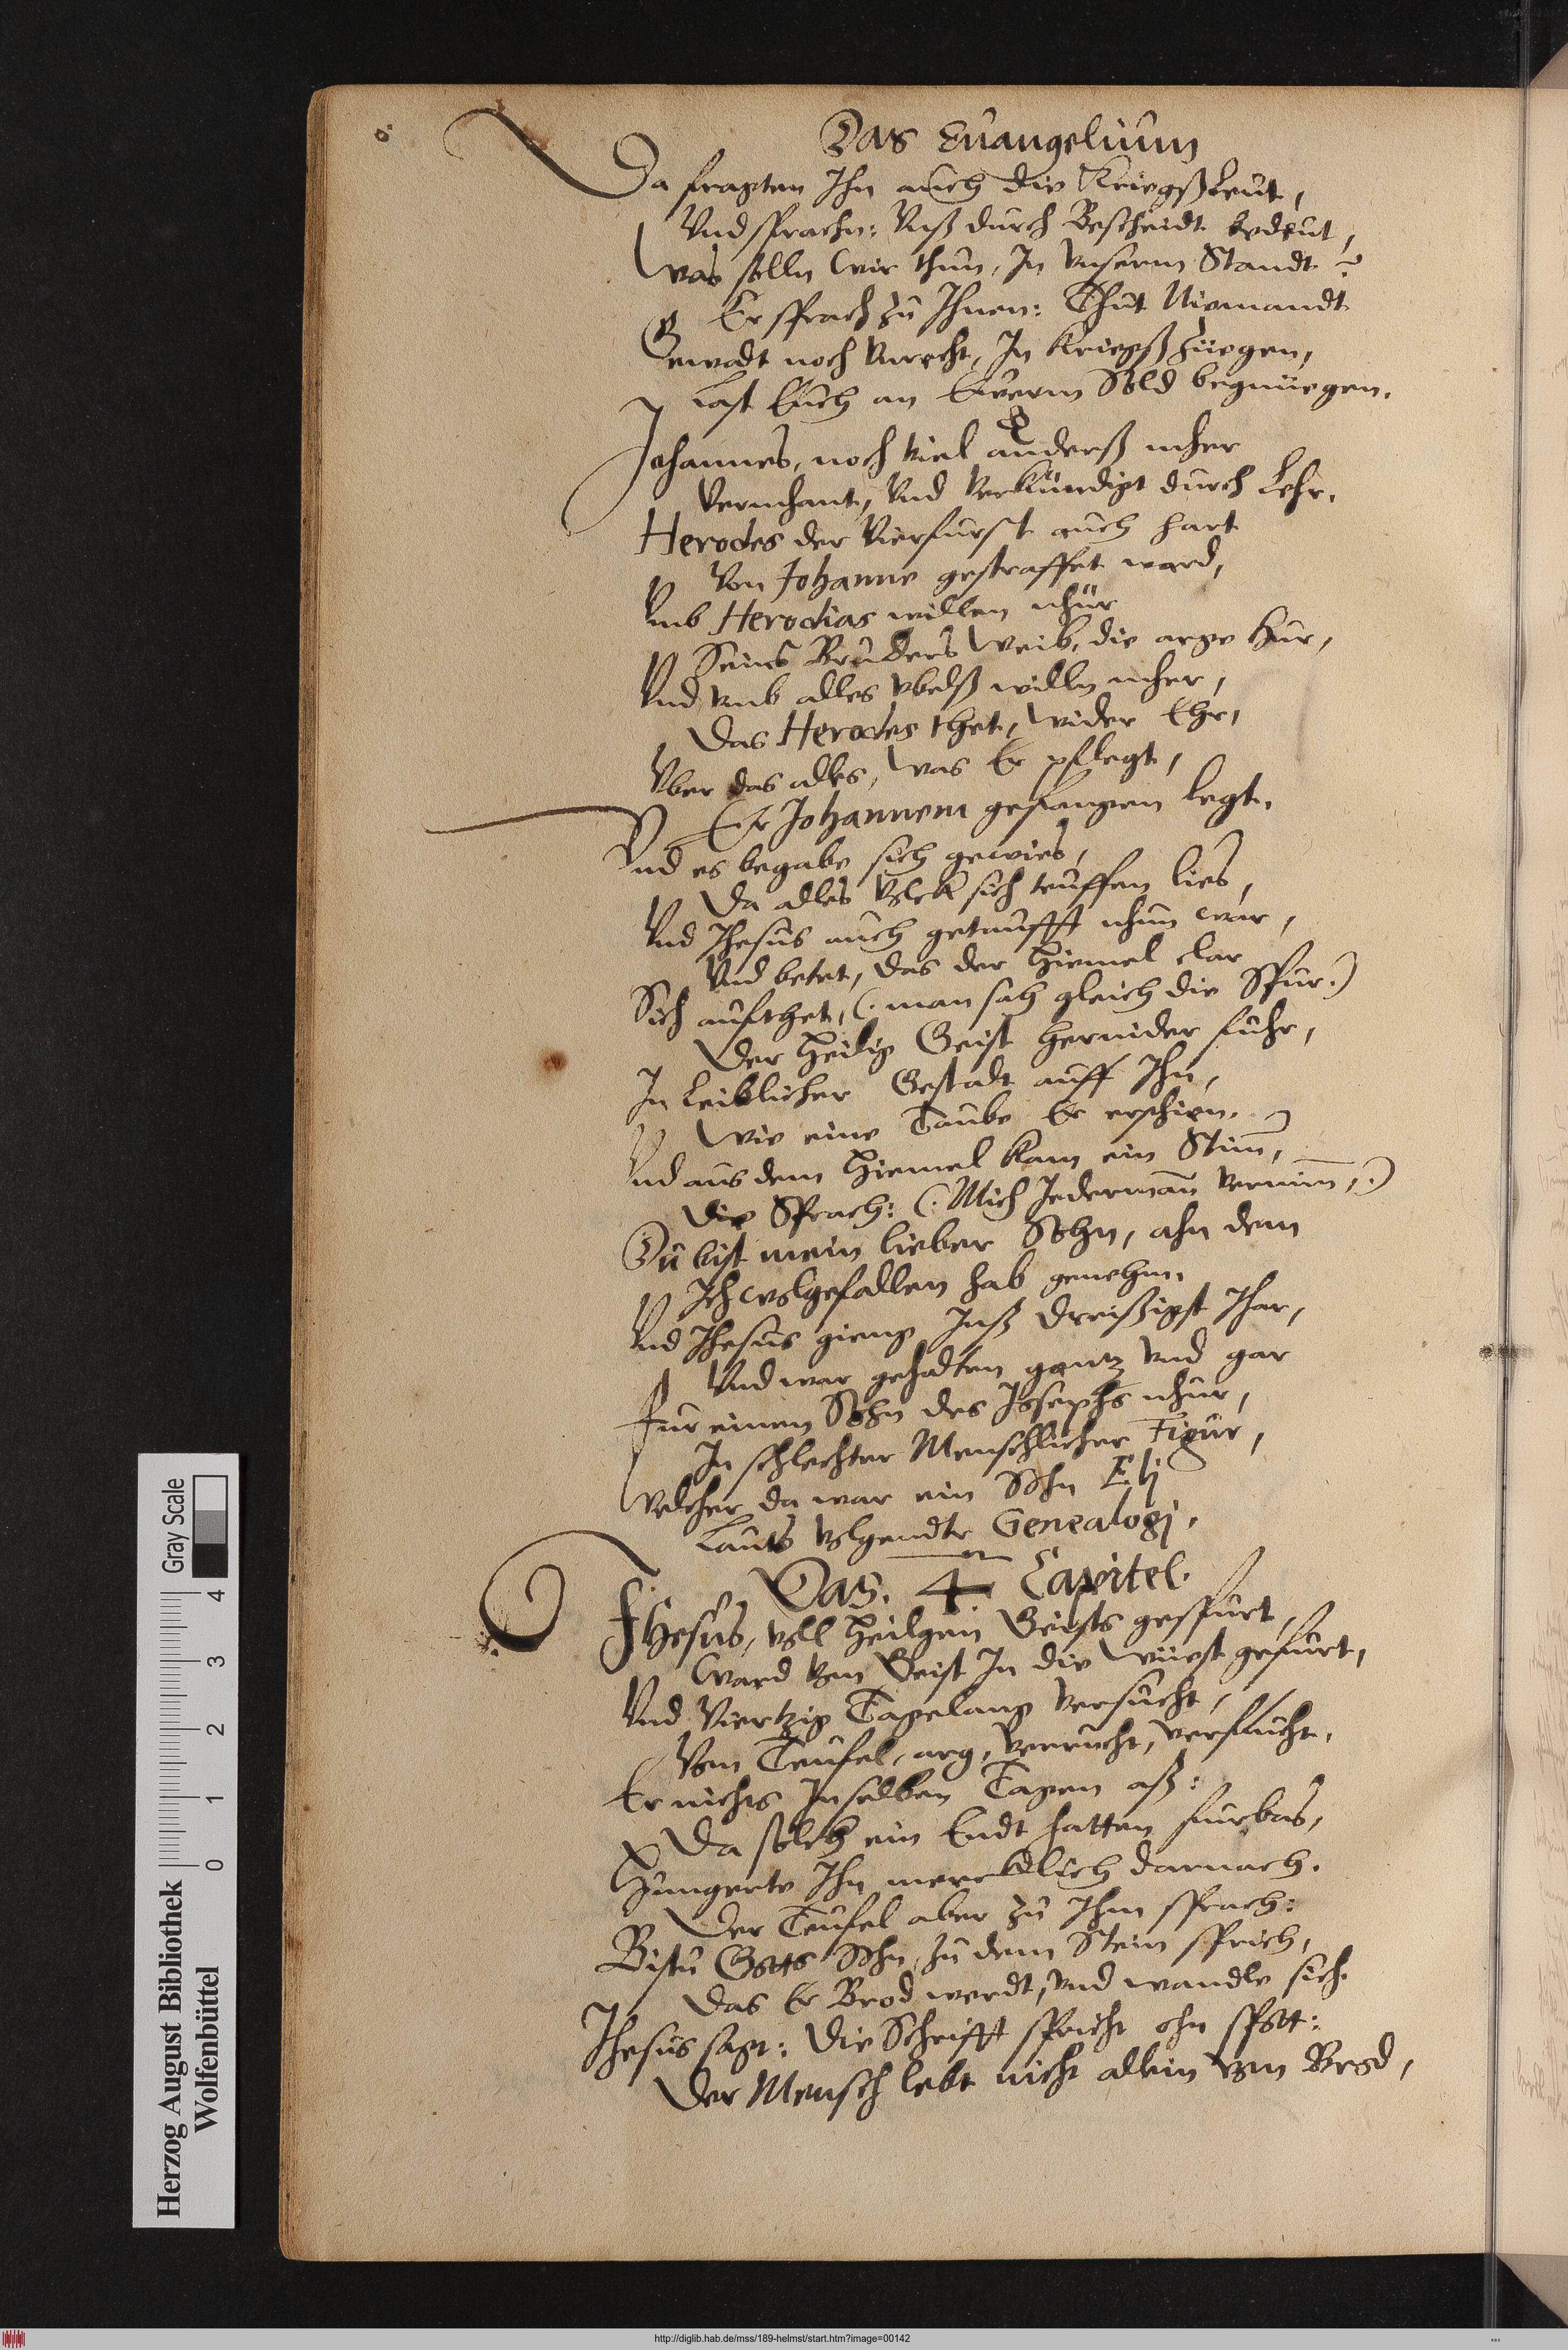 Das Euangelium
Da fragten Ihn auch die Kriegßleut,
Vnd sprachn: Vnß durch Bescheidt bedeut,
Was solln wir thun, In vnserm Standt?
Er sprach zu Ihnen: Thut Niemandt
Gewalt noch Vnrecht, In Kriegßzüegen,
Last Euch an Ewerm Sold begnüegen.
Johannes, noch viel anderß mher
Vermhant, Vnd Verkündigt durch Lehr.
Herodes der Vierfurst auch hart
Von Johanne gestraffet ward,
Vmb Herodias willen nhür
Seins Bruders Weib, die arge Hur,
Vnd vmb alles vbelß willn mher,
Das Herodes thet, wider Ehr,
Vber das alles, was Er pflegt,
Er Johannem gefangen legt.
Vnd es begabe sich gewies,
Da alles Volck sich teuffen lies,
Vnd Jhesus auch getaufft nhun war,
Vnd betet, das der Hiemel clar
Sich aufthet, (: man sah gleich die Spur:)
Der Heilig Geist hernider fuhr,
In Leiblicher Gestalt auff Ihn,
Wie eine Taube Er erschien.
Vnd aus dem Hiemel kam ein Stim̄,
Die Sprach: (: Mich Jederman̄ vernim̄,:)
Du bist mein lieber Sohn, ahn dem
Ich wolgefallen hab genehm.
Vnd Jhesus gieng Inß dreißigst Jhar,
Vnd war gehalten gantz vnd gar
Fur einen Sohn des Josephs nhur,
In schlechter Menschlicher Figur,
Welcher da war ein Sohn Elj
Lauts volgendtr Genealogj.
Das. 4 Capitel.
JHesus, voll Heilgen Geists gespurt,
Ward vom Geist In die Wüest gefurt,
Vnd Viertzig Tagelang versucht,
Vom Teufel, arg, verrucht, verflucht.
Er nichts Inselben Tagen aß:
Da solch ein Endt hatten furbas,
Hungerte Ihn mercklich darnach.
Der Teufel aber zu Ihm sprach:
Bistu Gotts Sohn, zu dem Stein sprich,
Das Er Brod werdt, vnd wandle sich.
Jhesus sagt: Die Schrifft spricht ohn spott:
Der Mensch lebt nicht allein vom Brod,
Herzog August Bibliothek
Wolfenbüttel
0 1 2 3 4
Gray Scale
http://diglib.hab.de/mss/189-helmst/start.htm?image=00142